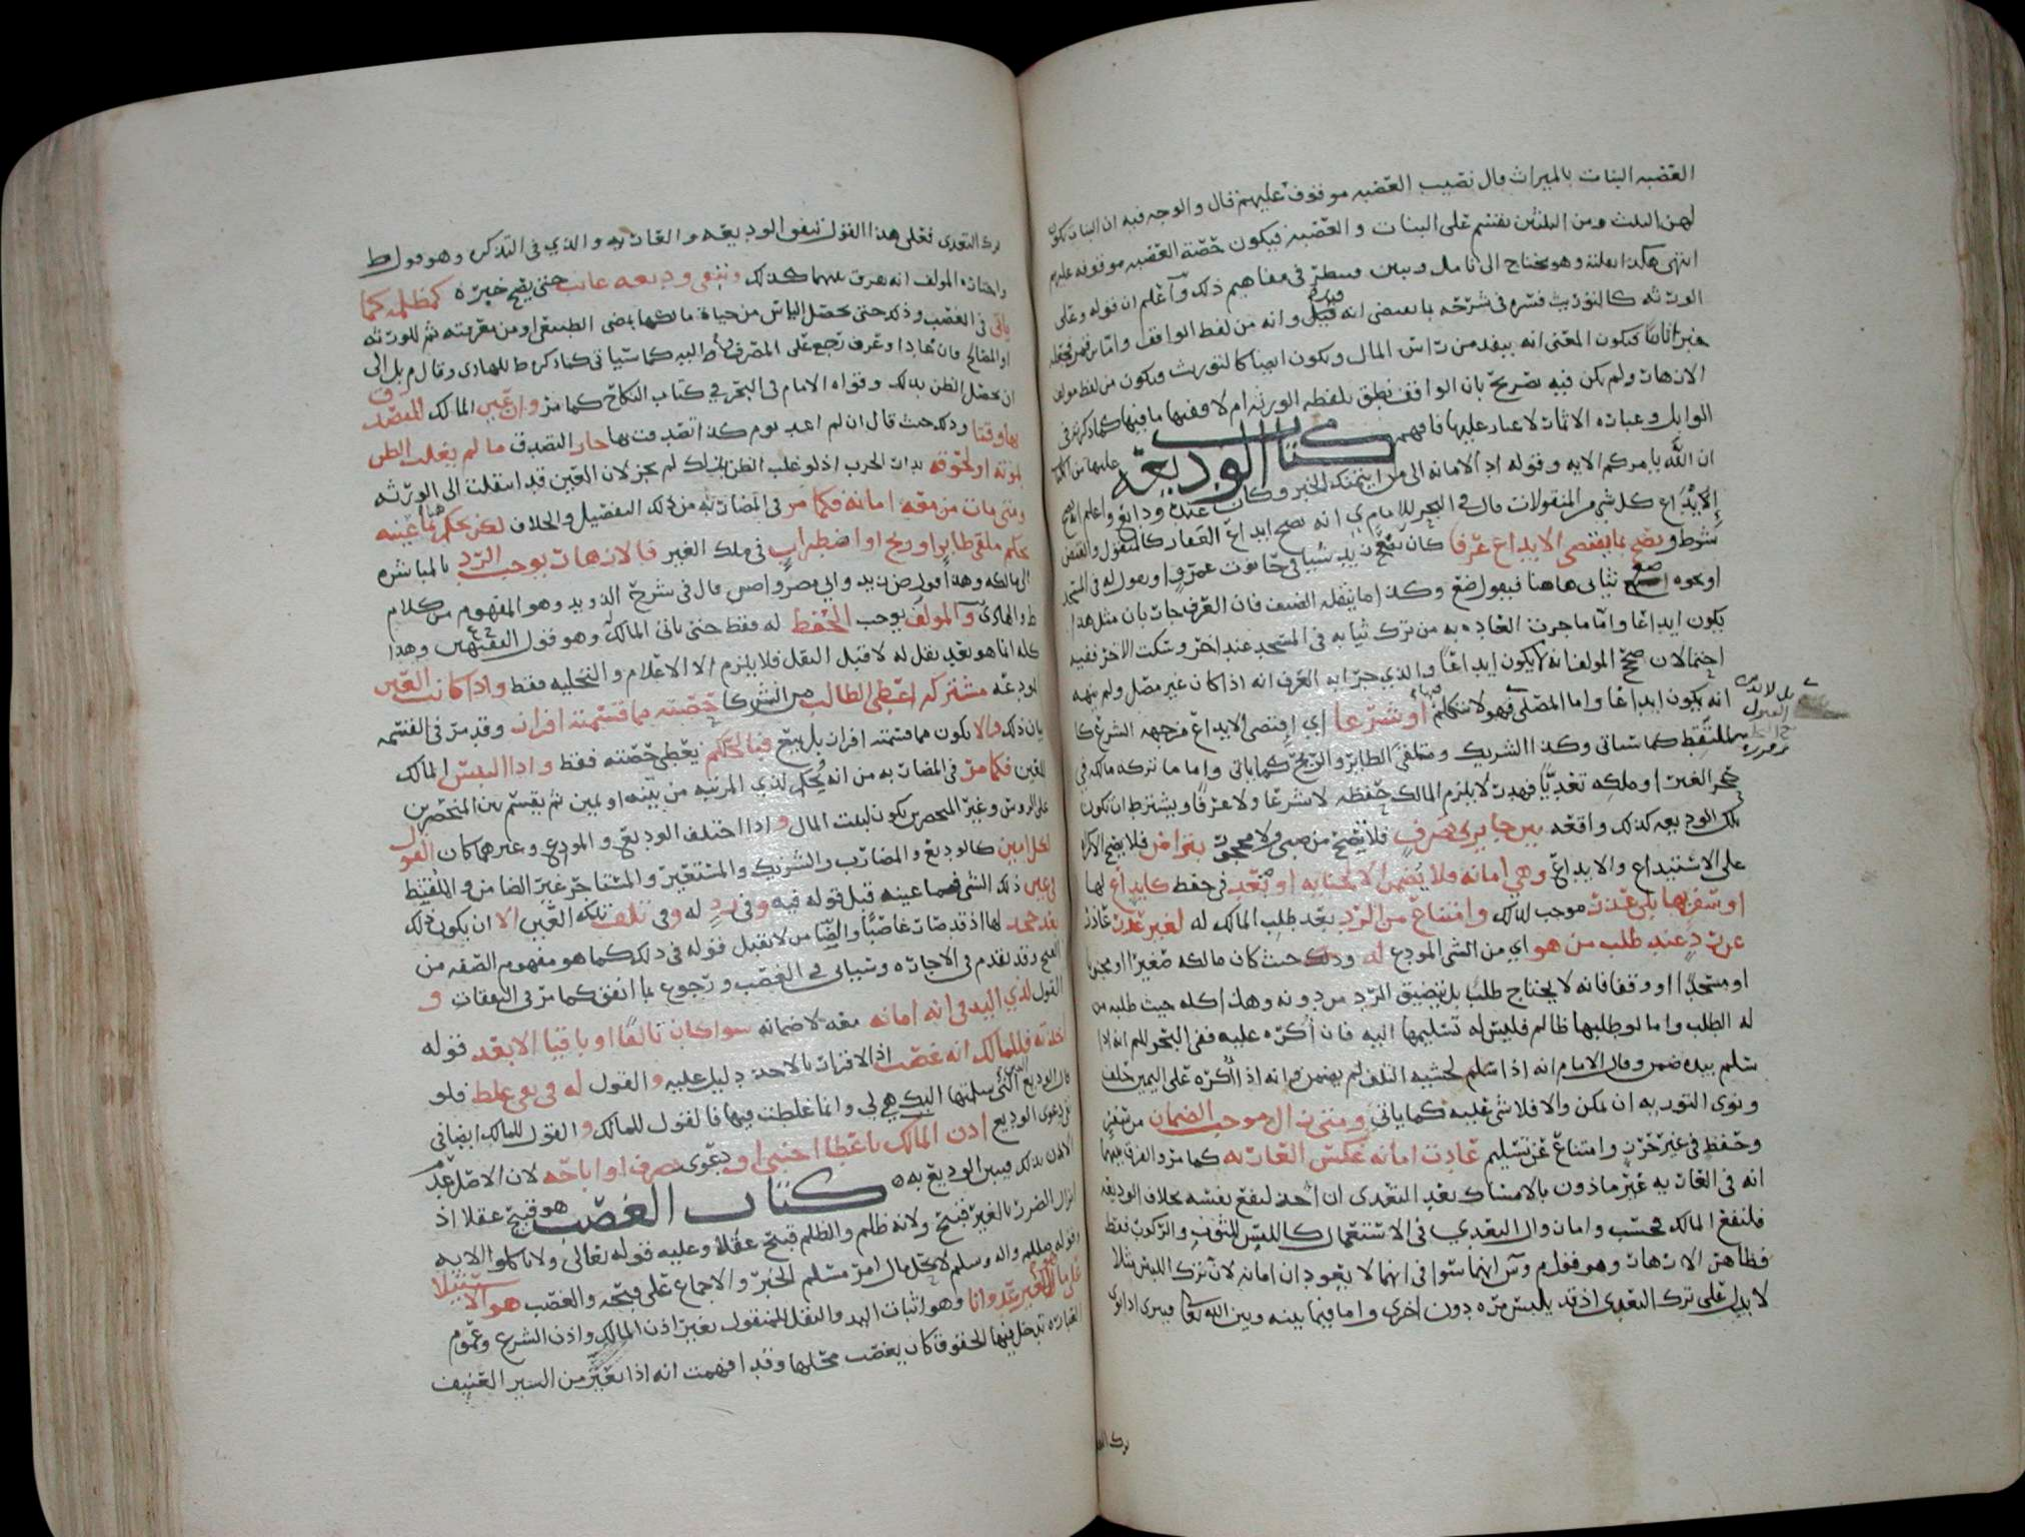 العصبه البنات بالميراث قال نصيب العصبه موقوف عليهم قال والوجه فيه ان البنات يكون
لهن الثلث ومن الثلثين يقسم على البنات والعصبه فيكون حصة العصبه موقوفه عليهم
انتهى هكذا نقلته وهو يحتاج الى تامل وبين وسطر في مفاهيم ذلك واعلم ان قوله وعلى
الورثه كالتوريث فسره في شرحه بما يقتضي انه قبل وانه من لفظ الواقف
فيكون المعنى انه ينفد من راس المال ويكون ايضا كالتوريث ويكون من لفظ مولف
الازهار ولم يكن فيه تصريح بان الواقف نطق بلفظه الورثه ام لا ففيها ما فيها كما ذكره في
الوابل وعبارة الاثمار لا غبار عليها فافهم
كتاب الوديعة
ان الله يامركم الايه وقوله اد الامانه الى من ائتمنك الخبر وكان عنده ودائع واعلم انه يصح
إلايداع كل شي من المنقولات قال في البحر للامام ي انه يصح ايداع العقار كالمنقول والقبض
شرط وتصح بما يقتضي الايداع عرفا كان يضع زيد شيا في حانوت عمرو او يقول له في المسجد
او نحوه ضع ثيابي هاهنا فيقول ضع وكذا ما ينقله الضيف فان العرف جار بان مثل هذا
يكون ايداعا واما ما جرت العاده به من ترك ثيابه في المسجد عند اخر وسكت الاخر ففيه
احتمالان صحح المولف انه لا يكون ايداعا والذي جرا به العرف انه اذا كان غير مصل ولم ينهه
انه يكون ايداعا واما المصلي فهو لا يتكلم او شرعا اي اقتضى الايداع من جهه الشرع كا
لملتقط كما سياتي وكذا الشريك وملقى الطاير والريح كما ياتي واما ما تركه مالكه في
حجر الغير او ملكه تعديا فهدر لا يلزم المالك حفظه لا شرعا ولا عرفا ويشترط ان تكون
تلك الوديعه كذلك واقعه بين جايزي تصرف فلا يصح من صبي ولا محجور بتراض فلا يصح الاكراه
على الاستيداع والايداع وهي امانه فلا يضمن الا لجنايه او تعد في حفظ كايداع لها
او سفر بها بلى عذر موجب لذلك وامتناع من الرد بعد طلب المالك له لغير عذر
عن رد عند طلب من هو اي من الشي المودع له وذلك حيث كان مالكه صغيرا او مجنونا
او مسجدا او وقفا فانه لا يحتاج طلب بل يتضيق الرد من دونه وهذا كله حيث طلبه من
له الطلب واما لو طلبها ظالم فليس له تسليمها اليه فان اكره عليه ففي البحر للم انه اذا
سلم بيده ضمن وقال الامام انه اذا سلم لخشيه التلف لم يضمن وانه اذا اكره على اليمين حلف
ونوى التوريه ان تمكن والا فلا شي عليه كما ياتي ومتى زال موجب الضمان من سفر
وحفظ في غير حرز وامتناع عن تسليم عادت امانه عكس العاريه كما مر والفرق بينهما
انه في العاريه غير ماذون بالامساك بعد التعدي ان اخذ لنفع نفسه بخلاف الوديعه
فلنفع المالك فحسب وامان زوال التعدي في الاستعمال كاللبس للثوب والركوب فقط
فظاهر الازهار وهو قول م وس انهما سوا في انهما لا يعودان امانه لان ترك اللبس مثلا
لا يدل على ترك التعدي اذ قد يلبس مره دون اخرى واما فيما بينه وبين الله تعالى فيبرى اذا نوى
بل لا بد من
القبول
ترك التعدي
ترك التعدي فعلى هذا القول تتفق الوديعه والعاريه والذي في التذكره وهو قول ط
واختاره المولف انه يبرى بينهما كذلك وتبقى وديعه غائب حتى يصح خبره كمظلمه كما
ياتي في الغصب وذلك حتى يحصل الياس من حياة مالكها بمضي العمر الطبيعي او من معرفته ثم للورثه
او المصالح فان عادا وعرف رجع على المصرف اليه كما سياتي كما ذكره ط للهادي وقال م بل الى
ان يحصل الظن بذلك وقواه الامام في البحر في كتاب النكاح كما مر وان عين المالك للتصدق
بها وقتا وذلك حيث قال ان لم اعد يوم كذا تصدقت بها جاز التصدق ما لم يغلب الظن
بموته او لحوقه بدار الحرب اذ لو غلب الظن بذلك لم يجز لان العين قد انتقلت الى الورثه
ومتى مات من معه امانه فكما مر في المضاربه من ذلك التفصيل والخلاف لكن يحكم بما عينه
حكم ملقى طاير او ريح او اضطراب في ملك الغير فالازهار يوجب الرد بالمباشره
الى مالكه وهذا قول ض زيد وابي مضر واحص قال في شرحه الدويد وهو المفهوم من كلام
ط والهادي والمولف يوجب الحفظ له فقط حتى ياتي المالك وهو قول الفقيهين وهذا
كله انما هو بعد نقل له لا قبل النقل فلا يلزم الا الاعلام والتخليه فقط واذا كانت العين
المودعه مشتركه اعطي الطالب من الشركا حصته مما قسمته افراز وقد مر في القسمه
بيان ذلك والا يكون مما قسمته افراز بل بيع فبالحكم يعطى حصته فقط واذا التبس المالك
للعين فكما مر في المضاربه من انه يحكم لذي المزيه من بينه او يمين ثم يقسم بين المنحصرين
على الروس وغير المنحصرين يكون لبيت المال واذا اختلف الوديع والمودع وغيرهما كان القول
لكل امين كالوديع والمضارب والشريك والمستعير والمستاجر غير الضامن والملتقط
في عين ذلك الشي فما عينه قبل قوله فيه وفي رد له وفي تلف تلك العين الا ان يكون ذلك
بعد جحد لها اذ قد صار غاصبا والضامن لا يقبل قوله في ذلك كما هو مفهوم الصفه من
المتن وقد تقدم في الاجاره وسياتي في الغصب ورجوع بما انفق كما مر في النفقات و
القول لذي اليد في انه امانه معه لا ضمانه سوا كان تالفا او باقيا الا بعد قوله
اخذته فللمالك انه غصب اذ الاقرار بالاخذ دليل عليه والقول له في دعوى غلط فلو
قال الوديع التي سلمتها اليك هي لي وانما غلطت فيها فالقول للمالك والقول للمالك ايضا في
نفي دعوى الوديع اذن المالك باعطا اجنبي او دعوى تصرف او اباحه لان الاصل عدم
الاذن بذلك فيبين الوديع به
كتاب الغصب
هو قبيح عقلا اذ
انزال الضرر بالغير قبيح ولانه ظلم والظلم قبيح عقلا وعليه قوله تعالى ولا تاكلوا الايه
وقوله صلى الله عليه واله وسلم لا يحل مال امرئ مسلم الخبر والاجماع على قبحه والغصب هو الاستيلا
على مال الغير عدوانا وهو اثبات اليد والنقل للمنقول بغير اذن المالك واذن الشرع وعموم
العباره تدخل فيها الحقوق كان يغصب محلها وقد افهمت انه اذا تغير من السير العنيف